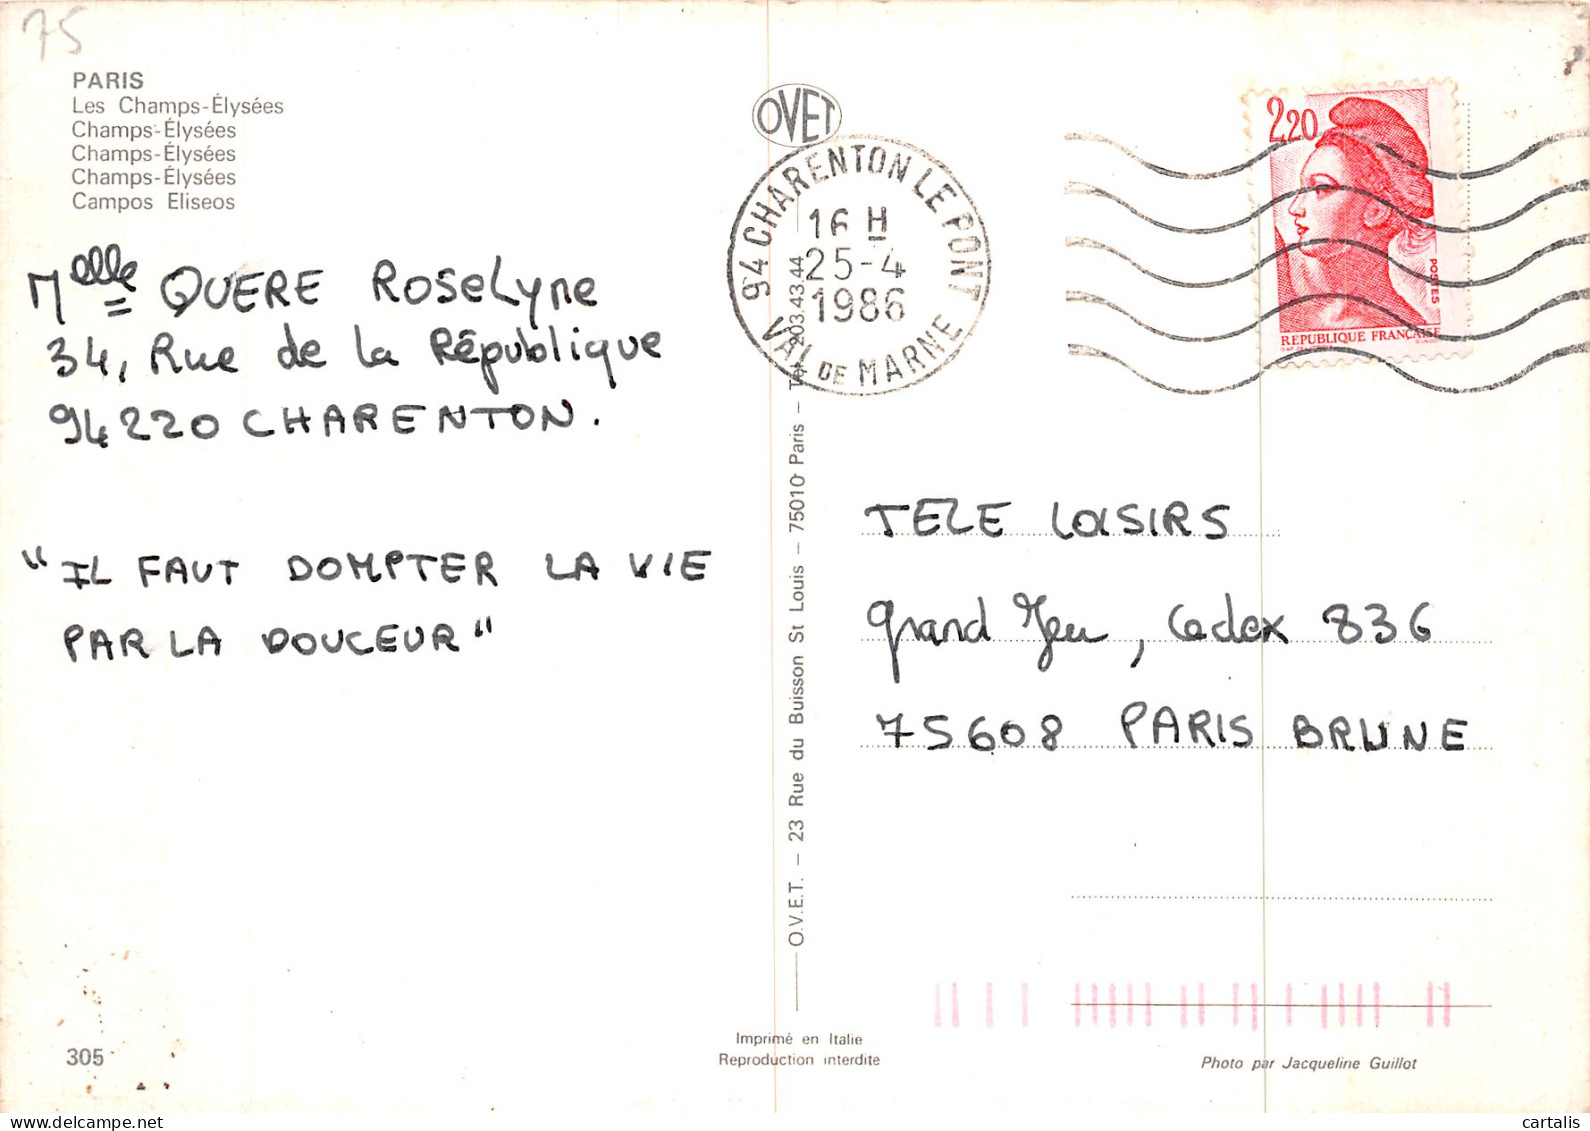 75
PARIS
Les Champs-Élysées
Champs-Élysées
Champs-Élysées
Champs-Élysées
Campos Eliseos
Melle QUERE Roselyne
34, Rue de la République
94220 CHARENTON.
"IL FAUT DOMPTER LA VIE
PAR LA DOUCEUR"
305
OVET
94 CHARENTON LE PONT
16 H
25-4
1986
VAL DE MARNE
O.V.E.T. — 23 Rue du Buisson St Louis — 75010 Paris — Tél. 203.43.44
Imprimé en Italie
Reproduction interdite
2,20
POSTES
REPUBLIQUE FRANÇAISE
TELE LOISIRS
Grand Jeu, Cedex 836
75608 PARIS BRUNE
Photo par Jacqueline Guillot
cartalis